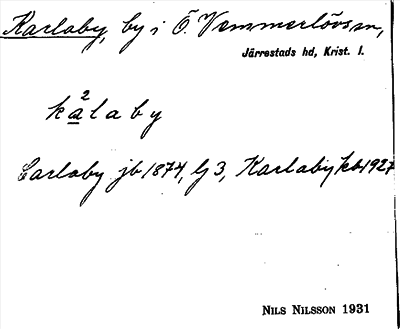 Karlaby, by i Ö. Vemmerlövs sn,
Järrestads hd, Krist. l.
ka²laby
Carlaby jb 1874, lj 3, Karlaby kb 1927
NILS NILSSON 1931